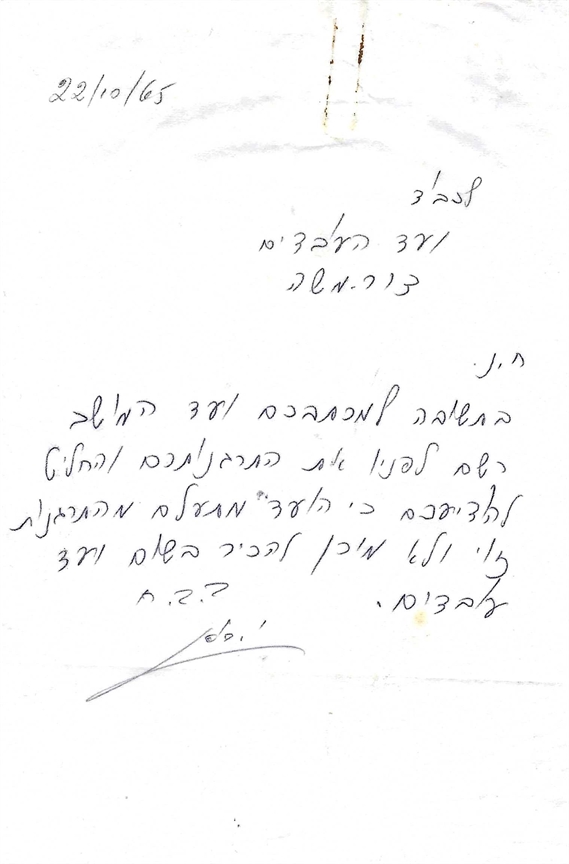 22/10/65
לכב'ד
ועד העובדים
צור-משה
ח.נ.
בתשובה למכתבכם ועד המושב
רשם לפניו את התרגנותכם והחליט
להודיעכם כי הועד מתעלם מהתרגנות
זו ולא מוכן להכיר בשום ועד
עובדים.
ב.ב.ח